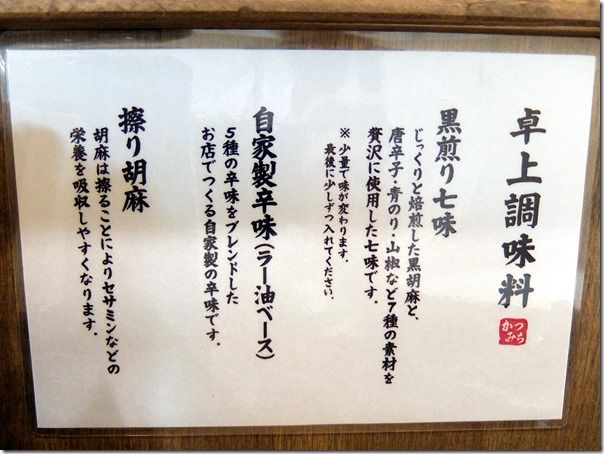 卓上調味料
かつ
みち
黒煎り七味
じっくりと焙煎した黒胡麻と、
唐辛子・青のり・山椒など7種の素材を
贅沢に使用した七味です。
※少量で味が変わります。
最後に少しずつ入れてください。
自家製辛味(ラー油ベース)
5種の辛味をブレンドした
お店でつくる自家製の辛味です。
擦り胡麻
胡麻は擦ることによりセサミンなどの
栄養を吸収しやすくなります。